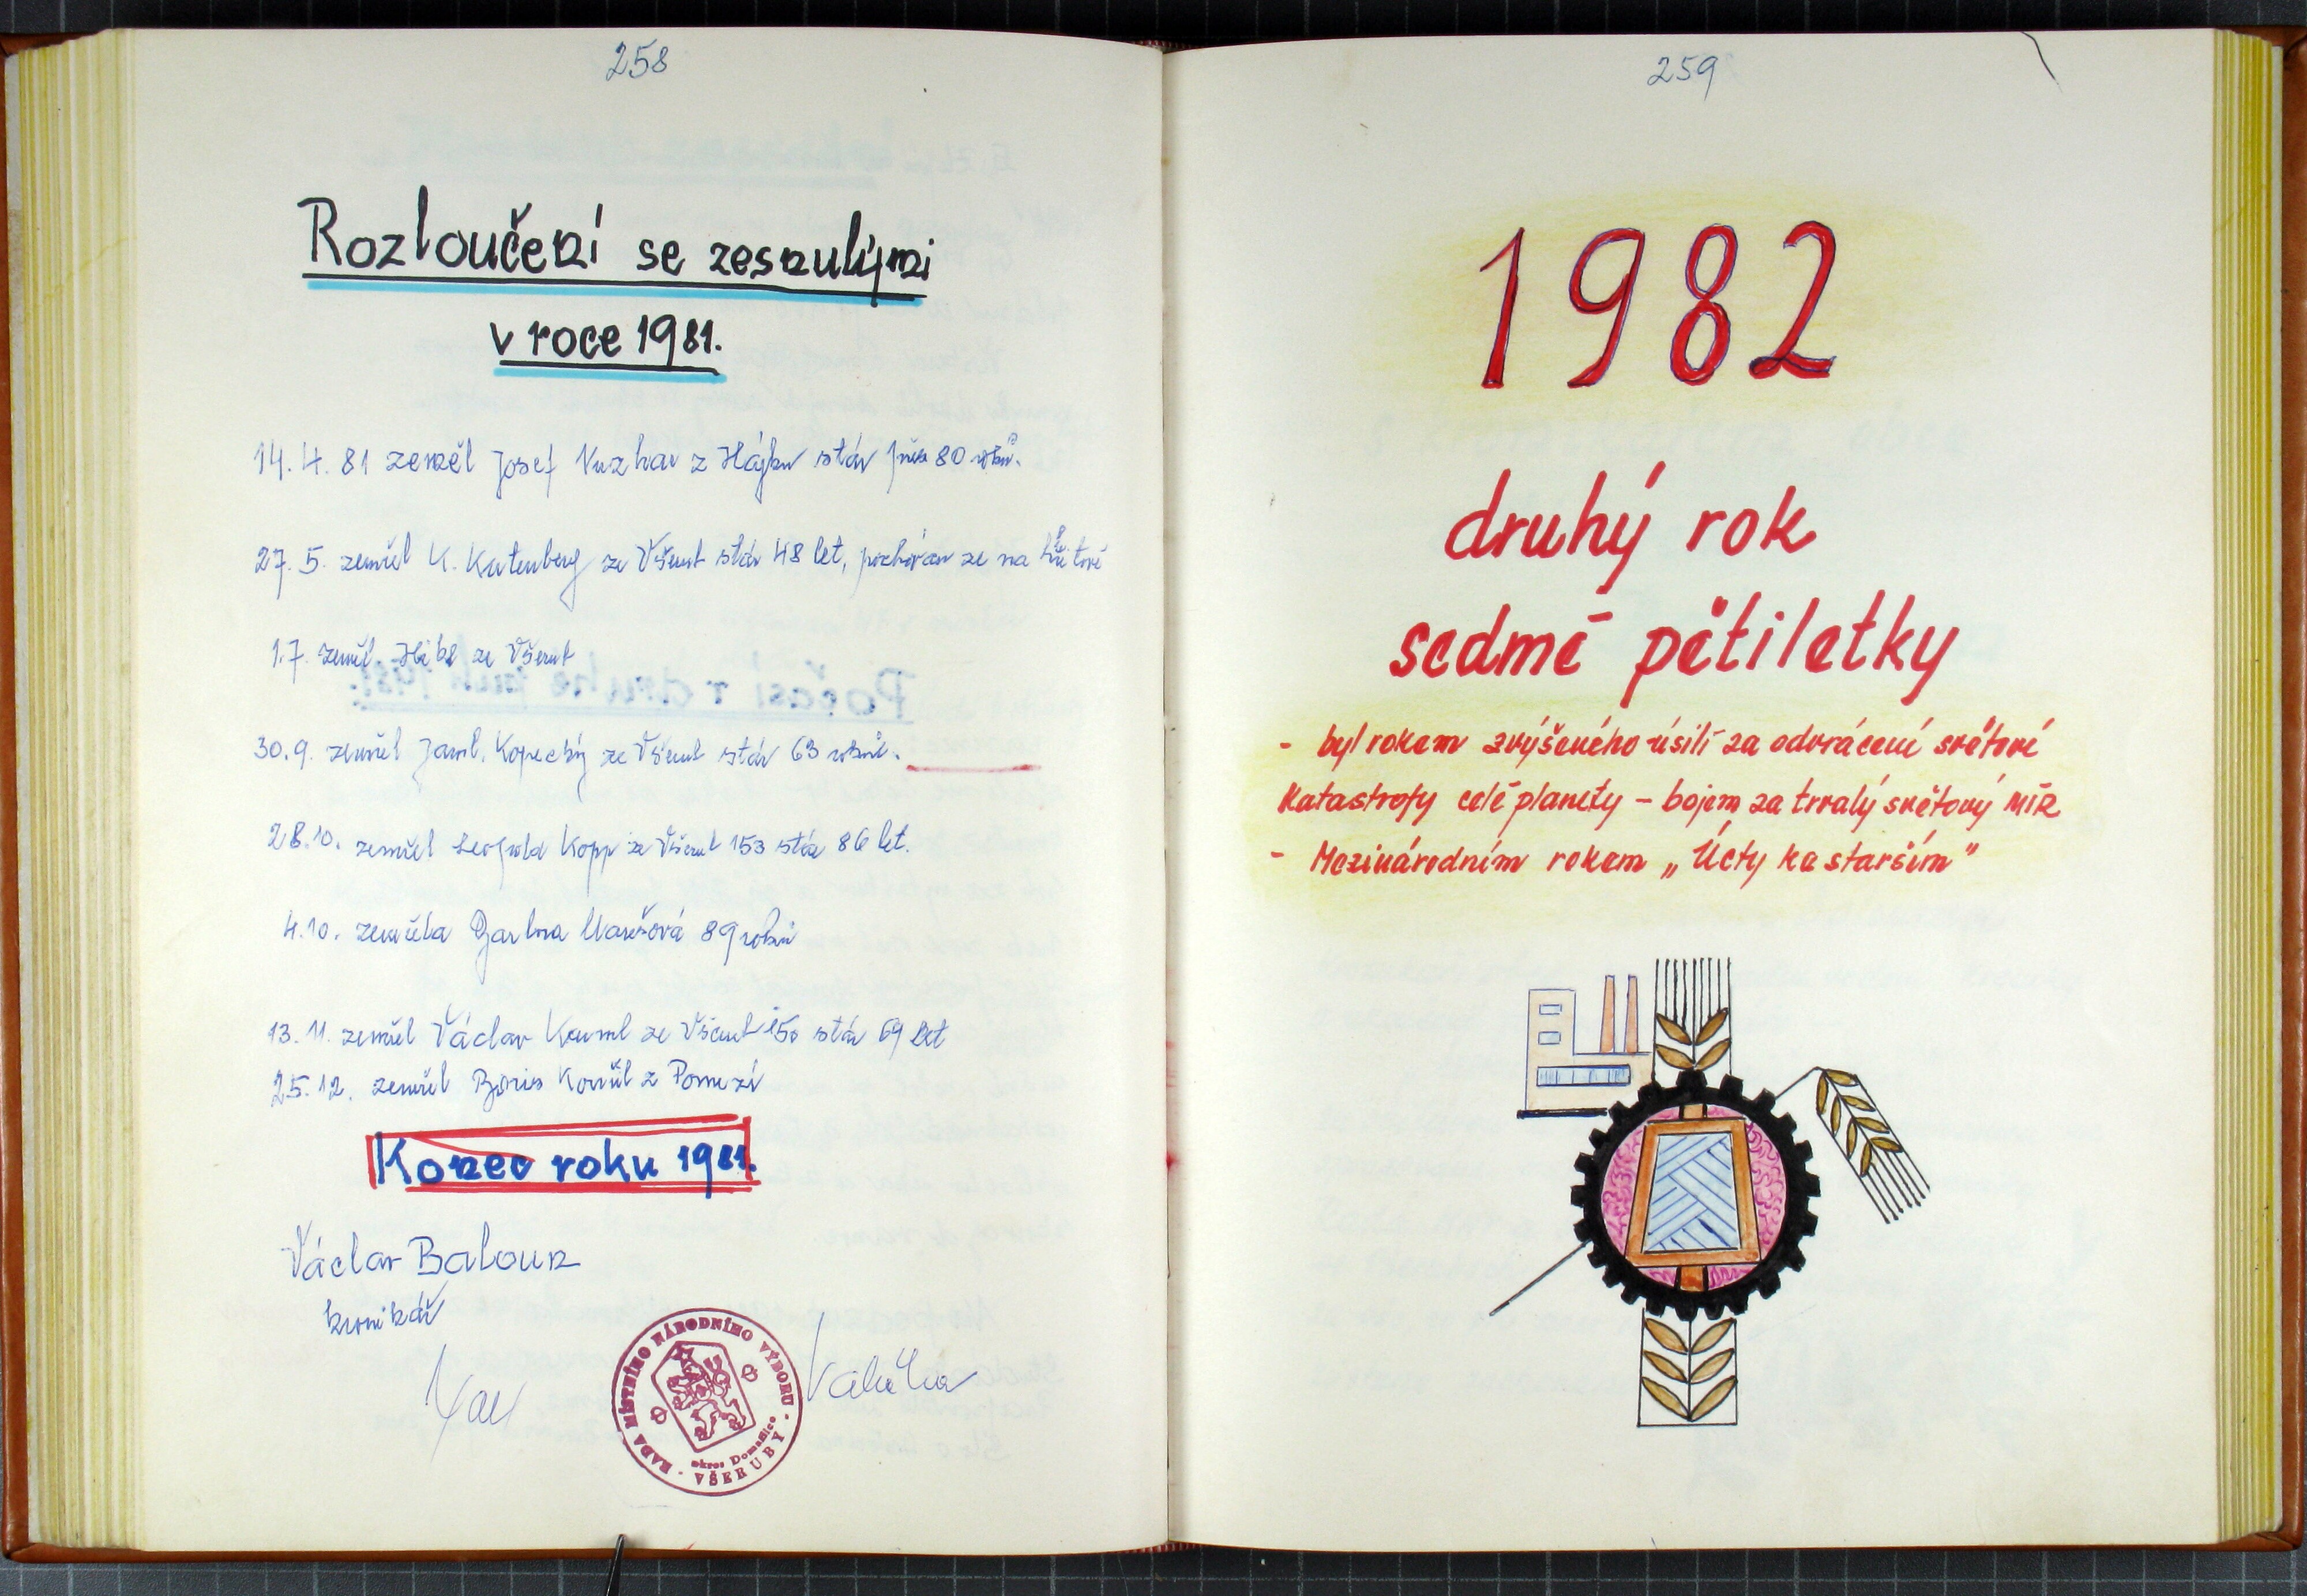 258
Rozloučení se zesnulými
v roce 1981.
14. 4. 81 zemřel Josef z Hájku stár přes 80 roků.
27. 5. zemřel K. Kutenberg ze Všerub stár 48 let, pochován ze na
1.7. zemřel ze Všerub
30. 9. zemřel Jarosl. Kopecký ze Všerub stár 63 roků.
28.10. zemřel Leopold Kopp ze Všerub 153 stár 86 let.
4.10. zemřela Barbora Marešová 89 roků
13. 11. zemřel Václav Kuml ze Všerub 150 stár 69 let
25. 12. zemřel Boris z Pomezí
Konec roku 1981.
Václav Baloun
kronikář
RADA MÍSTNÍHO NÁRODNÍHO VÝBORU
okres Domažlice
VŠERUBY
259
1982
druhý rok
sedmé pětiletky
- byl rokem zvýšeného úsilí za odvrácení světové
katastrofy celé planety - bojem za trvalý světový MÍR
- Mezinárodním rokem „Úcty ke starším"